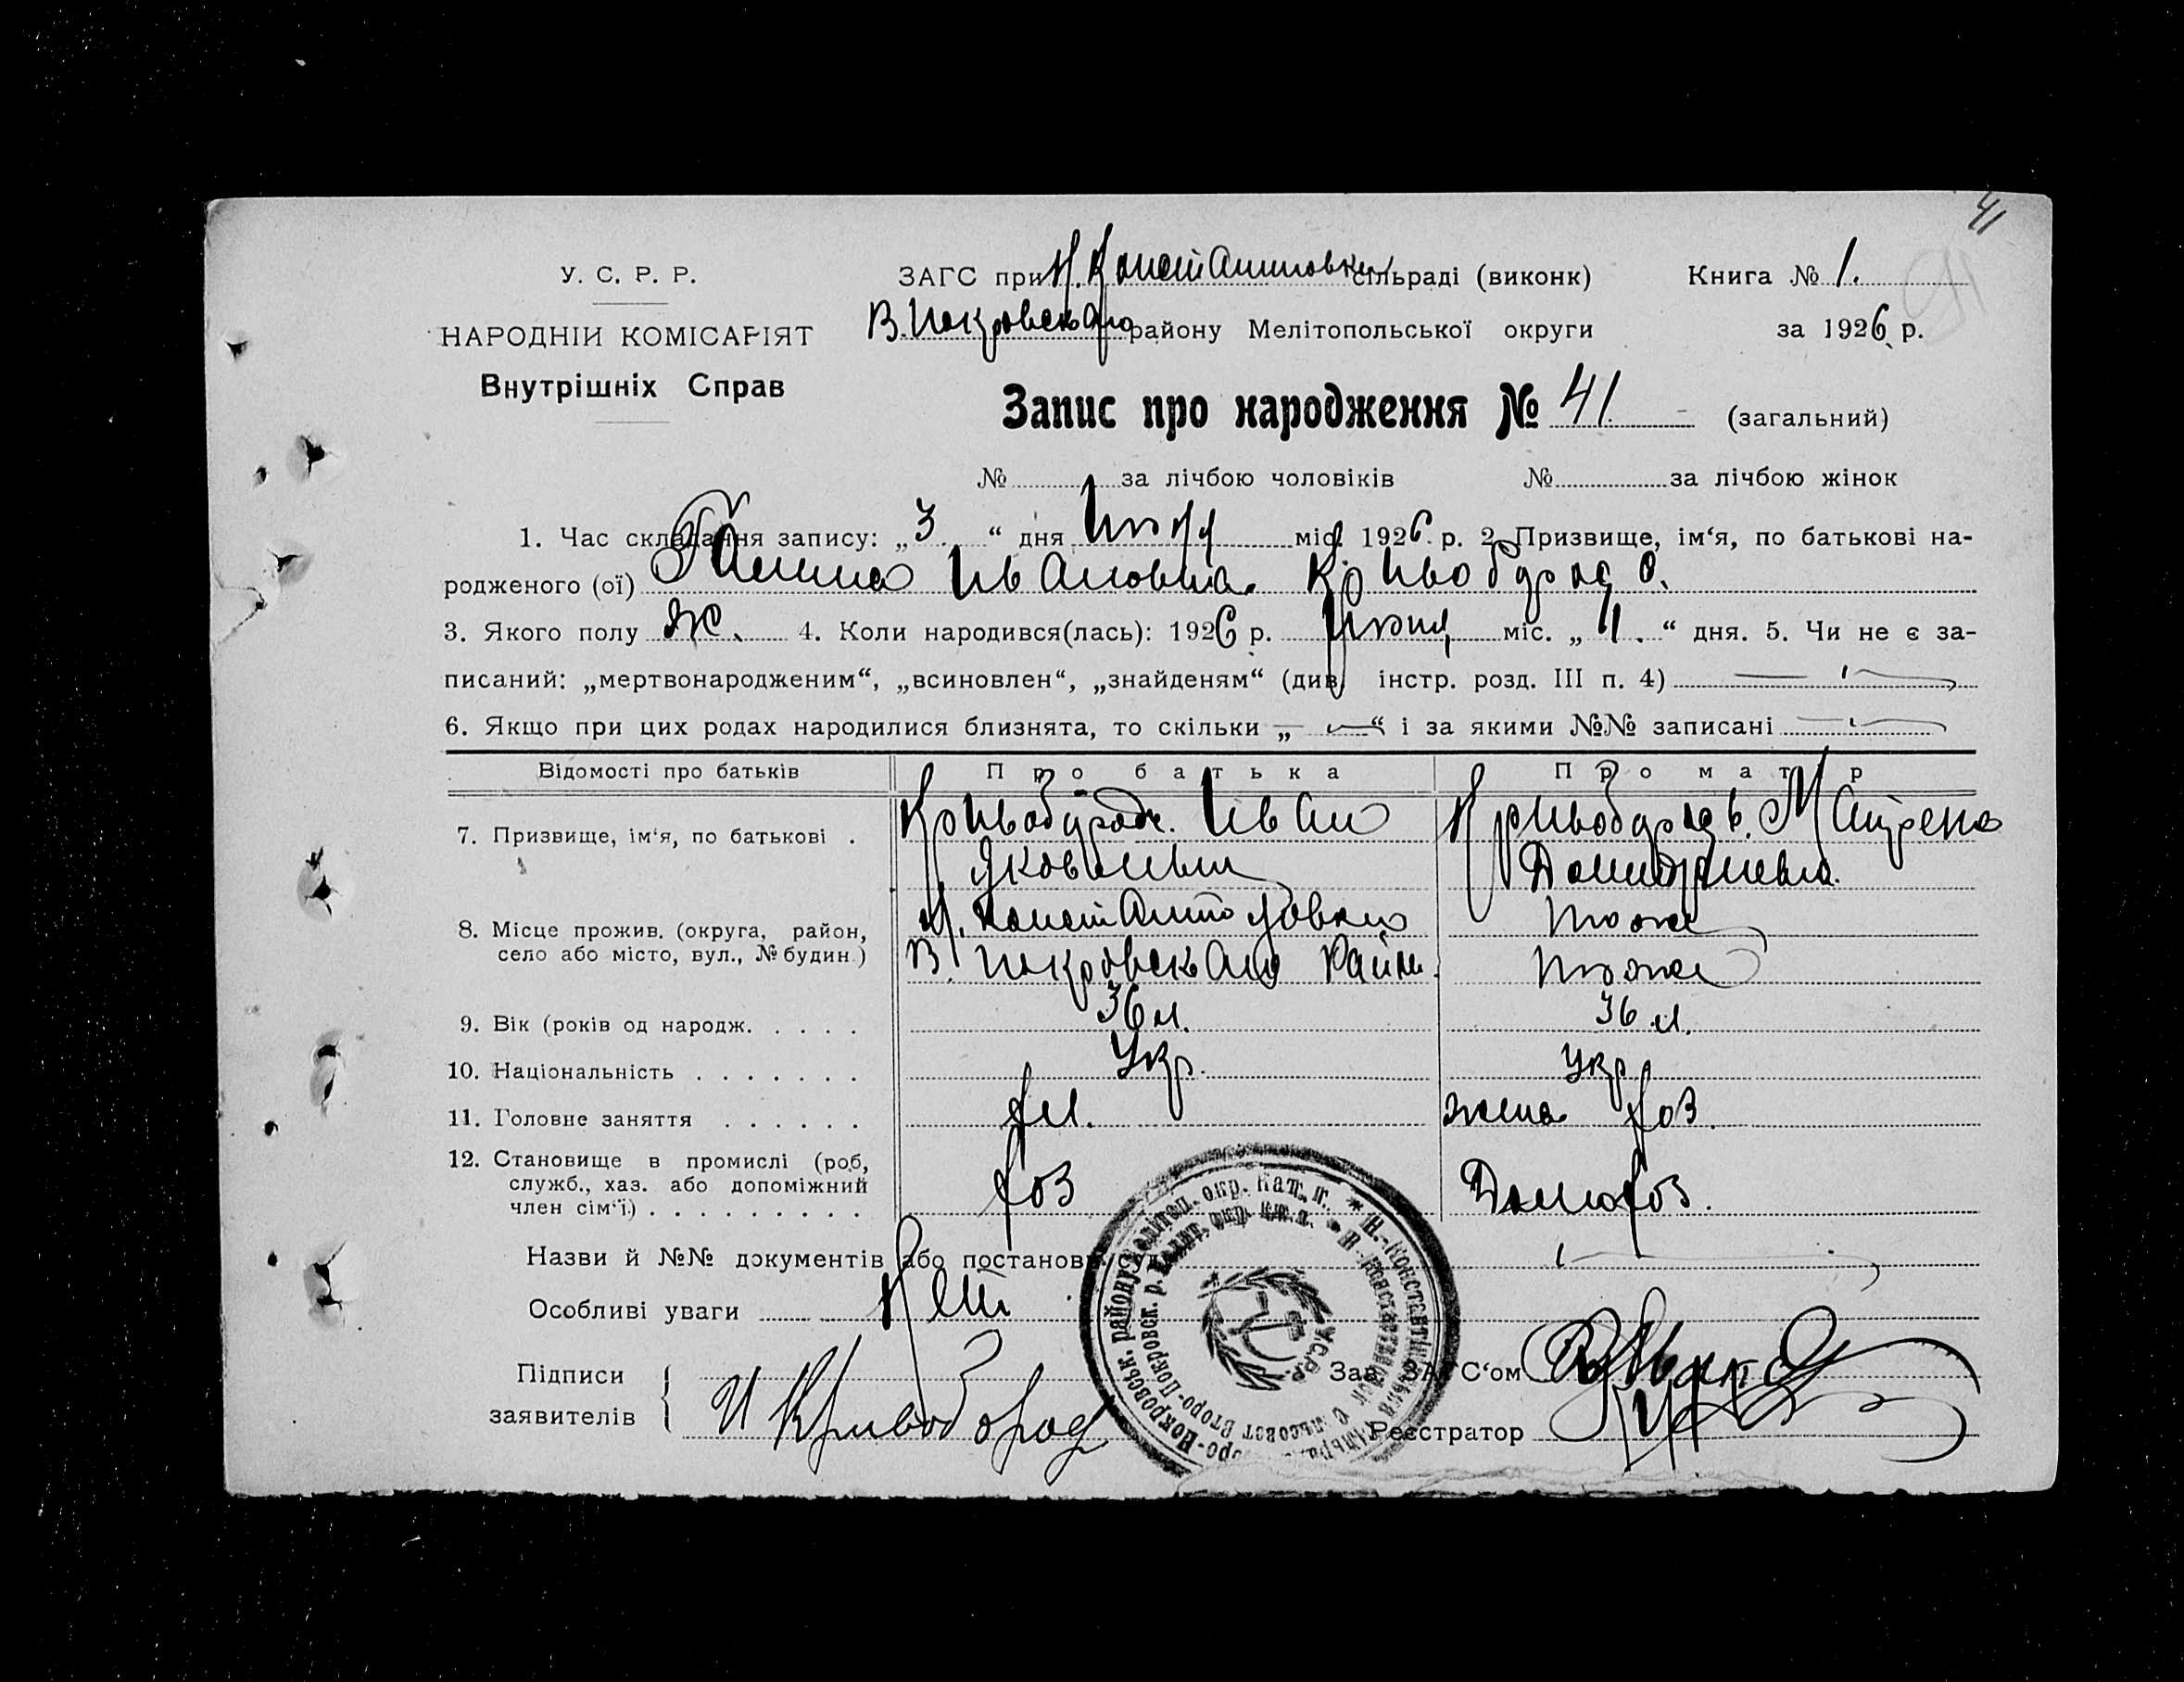 41
У. С. Р. Р.
ЗАГС при Н. Константиновки сільраді (виконк)
Книга № 1.
НАРОДНІИ КОМІСАРІЯТ
В. Покровскаго району Мелітопольської округи
за 1926 р.
Внутрішніх Справ
Запис про народження № 41 (загальний)
№ за лічбою чоловіків № за лічбою жінок
1. Час складання запису: „3“ дня Июля міс. 1926 р. 2. Призвище, ім‘я, по батькові на-
родженого (ої) Ивановна
3. Якого полу ж. 4. Коли народився(лась): 1926 р. міс. „1.“ дня. 5. Чи не є за-
писаний: „мертвонародженим“, „всиновлен“, „знайденям“ (див. інстр. розд. III п. 4)
6. Якщо при цих родах народилися близнята, то скільки „ “ і за якими №№ записані
Відомості про батьків
Про батька
Про матір
7. Призвище, ім‘я, по батькові . Иван Матрена
8. Місце прожив. (округа, район, Н. тоже
село або місто, вул., № будин.) В. Покровскаго Район. тоже
9. Вік (років од народж. . . . . 36 л. 36 л.
10. Національність . . . . . . . Укр. Укр
11. Головне заняття . . . . . . хл. жена хоз.
12. Становище в промислі (роб,
служб., хаз. або допоміжний хоз Домохоз.
член сім‘ї.) . . . . . . . . .
Назви й №№ документів або постанов
Особливі уваги Нет
Підписи
заявителів
И Кривобород
Зав. ЗАГС‘ом
Реєстратор
У.С.Р.Р.